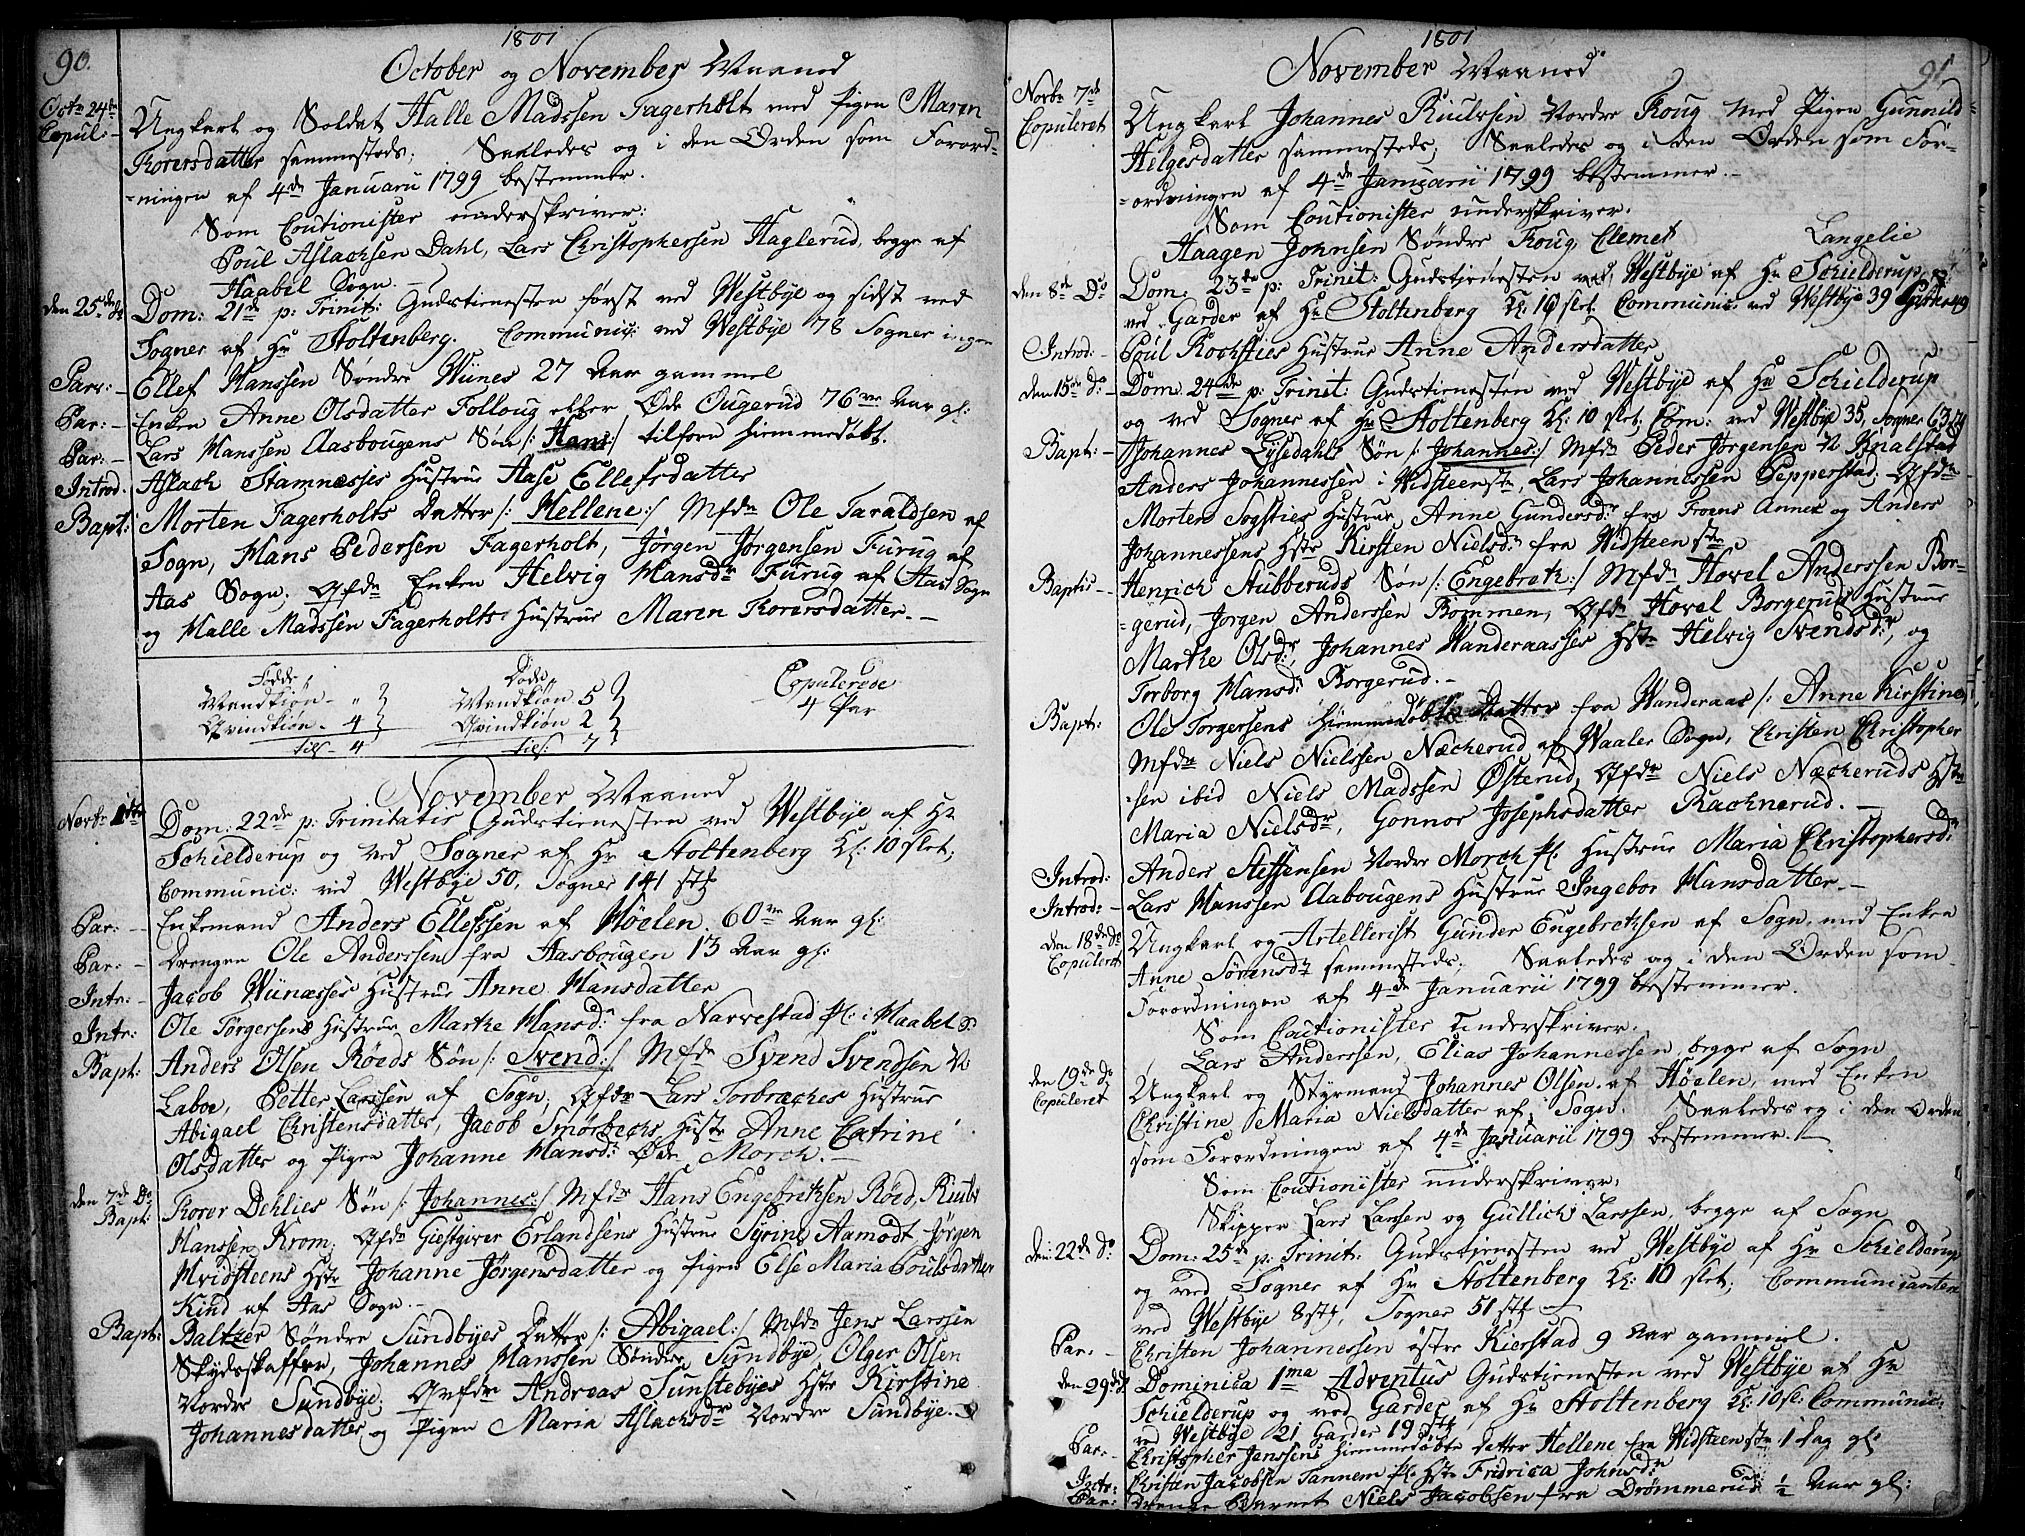 90.
1801
October og November Maaned
Octr 24de Ungkarl og Soldat Halle Madssen Fagerholt med Pigen Maren
Copul: Korersdatter sammesteds; Saaledes og i den Orden som Forord-
-ningen af 4de Januarii 1799 bestemmer.
Som Coutionister underskriver:
Poul Aslachsen Dahl, Lars Christophersen Haglerud, begge af
Haabel Sogn.
den 25de Do Dom: 21de p: Trinit: Gudstienesten først ved Westbye og sidst ved
Sogner af Hr Stoltenberg. Communic: ved Westbye 78 Sogner ingen
Par: Ellef Hanssen Søndre Wiines 27 Aar gammel
Par: Enken Anne Olsdatter Folloug eller Øde Ougerud 76 Aar gl:
Par: Lars Hanssen Aasbougens Søn /: Hans :/ tilforn hiemmedøbt.
Introd. Aslach Stamnæsses Hustrue Aase Ellefsdatter
Bapt: Morten Fagerholts Datter /: Hellene :/ Mfdr Ole Taraldsen af
Sogn, Hans Pedersen Fagerholt, Jørgen Jørgensen Furug af
Aas Sogn. Qfdr Enken Helvig Hansdr Furug af Aas Sogn
og Halle Madssen Fagerholts Hustrue Maren Korersdatter.
Fødde Døde Copulerede
Mandkiøn - " Mandkiøn 5 4 Par
Qvindkiøn - 4 Qvindkiøn 2
tils - 4 tils: 7
November Maaned
Novbr 1ste Dom: 22de p: Trinitatis Gudstienesten ved Westbye af Hr
Schielderup og ved Sogner af Hr Stoltenberg Kl: 10 slet;
Communic: vid Westbye 50, Sogner 141 stk
Par: Enkemand Anders Ellefssen af Høelen 60 Aar gl:
Par: Drengen Ole Anderssen fra Aasbougen 13 Aar gl:
Intr: Jacob Wiinæsses Hustrue Anne Hansdatter
Intr: Ole Torgersens Hustrue Marthe Hansdr fra Narvestad Pl: i Haabel S:
Bapt: Anders Olsen Røeds Søn /: Svend :/ Mfdr Svend Svendsen N
Laboe, Petter Larssen af Sogn, Qfdr Lars Torbræches Hustrue
Abigael Christensdatter, Jacob Smørbechs Hustr Anne Catrine
Olsdatter og Pigen Johanne Hansdr Øde Morch.
den 7de Do Bapt: Korer Dehlies Søn /: Johannes :/ Mfdr Hans Engebretsen Røed,
Hanssen Krom, Qfdr Giestgiver Erlandsens Hustrue Syrine Aamodt Jørgen
Hvidsteens Hstr Johanne Jørgensdatter og Pigen Else Maria Poulsdatter
Kind af Aas Sogn.
Bapt: Baltzer Søndre Sundbyes Datter /: Abigael :/ Mfdr Jens Larssen
Skydsskaffer, Johannes Hanssen Søndre Sundbye, Olger Olsen
Nordre Sundbye, Qvfdr Andreas Sunstebyes Hstr Kirstine
Johannesdatter og Pigen Maria Aslachsdr Nordre Sundbye.
1801
91
November Maaned
Novbr 7de Copuleret Ungkarl Johannes Riulssen Nordre Kroug med Pigen Gunnild
Helgesdatter sammesteds; Saaledes og i den Orden som For-
-ordningen af 4de Januarii 1799 bestemmer.
Som Coutionister underskriver.
Haagen Johnsen Søndre Kroug, Clemet Langelie
den 8de Do Dom: 23de p: Trinit: Gudstienesten ved Westbye af Hr Schielderup,
ved Garder af Hr Stoltenberg Kl: 10 slet. Communic: ved Westbye 39 Garder 49
Introd: Poul Kochsties Hustrue Anne Andersdatter
den 15de Do Dom: 24de p: Trinit: Gudstienesten ved Westbye af Hr Schielderup
og ved Sogner af Hr Stoltenberg Kl: 10 slet. Com: ved Westbye 35, Sogner 63
Bapt: Johannes Lysedahls Søn /: Johannes :/ Mfdr Peder Jørgensen N
Anders Johannessen i Widsteen, Lars Johannessen Pepperstad. Qfdr
Morten Sogsties Hustrue Anne Gundersdr fra Froens Annex og Anders
Johannessens Hstr Kirsten Nielsdr fra Widsteen
Baptis Henrich Stubberuds Søn /: Engebret :/ Mfdr Hovel Anderssen Bor-
-gerud, Jørgen Anderssen Bommen, Qfdr Hovel Borgeruds Hustrue
Marthe Olsdr, Johannes Wanderaasses Hstr Helvig Svendsdr, og
Torborg Hansdr Borgerud.
Bapt: Ole Torgersens hiemmedøbte Datter fra Wanderaas /: Anne Kirstine
Mfdr Niels Nielssen Næcherud af Waaler Sogn, Christen Christopher
-sen ibid Niels Madssen Østerud, Qfdr Niels Næcheruds Hstr
Maria Nielsdr, Gonnor Josephsdatter Rachnerud.
Introd: Anders Steffensen Nordre Morch Pl: Hustrue Maria Christophersdr
Introd: Lars Hanssen Aabougens Hustrue Ingebor Hansdatter.
den 18de Do Copuleret Ungkarl og Artellerist Gunder Engebretsen af Sogn med Enken
Anne Sørensdr sammesteds; Saaledes og i den Orden som
Forordningen af 4de Januarii 1799 bestemmer.
Som Cautionister underskriver.
Lars Anderssen, Elias Johannessen begge af Sogn
den 19de Do Copuleret Ungkarl og Styrmand Johannes Olsen af Høelen, med Enken
Christine Maria Nielsdatter af Sogn. Saaledes og i den Orden
som Forordningen af 4de Januarii 1799 bestemmer.
Som Coutionister underskriver,
Skipper Lars Larssen og Gullich Larssen, begge af Sogn
den 22de Do Dom: 25de p: Trinit: Gudstienesten ved Westbye af Hr Schielderup
og ved Sogner af Hr Stoltenberg Kl: 10 slet; Communicanter
ved Westbye 8 stk, Sogner 51 stk
Par: Christen Johannessen østre Kierstad 9 Aar gammel.
den 29de Dominica 1ma Adventus Gudstienesten ved Westbye af Hr
Schielderup og ved Garder af Hr Stoltenberg Kl: 10 sl: Communic:
ved Westbye 21 Garder 19 stk
Par: Christopher Jenssens hiemmedøbte Datter Hellene fra Widsteen 1 Dag gl:
Intr: Christen Jacobsen Tannem Pl: Hstr Fridrica Johnsdr
Par: Drenge Barnet Niels Jacobsen fra Drømmerud 1/2 Aar gl: